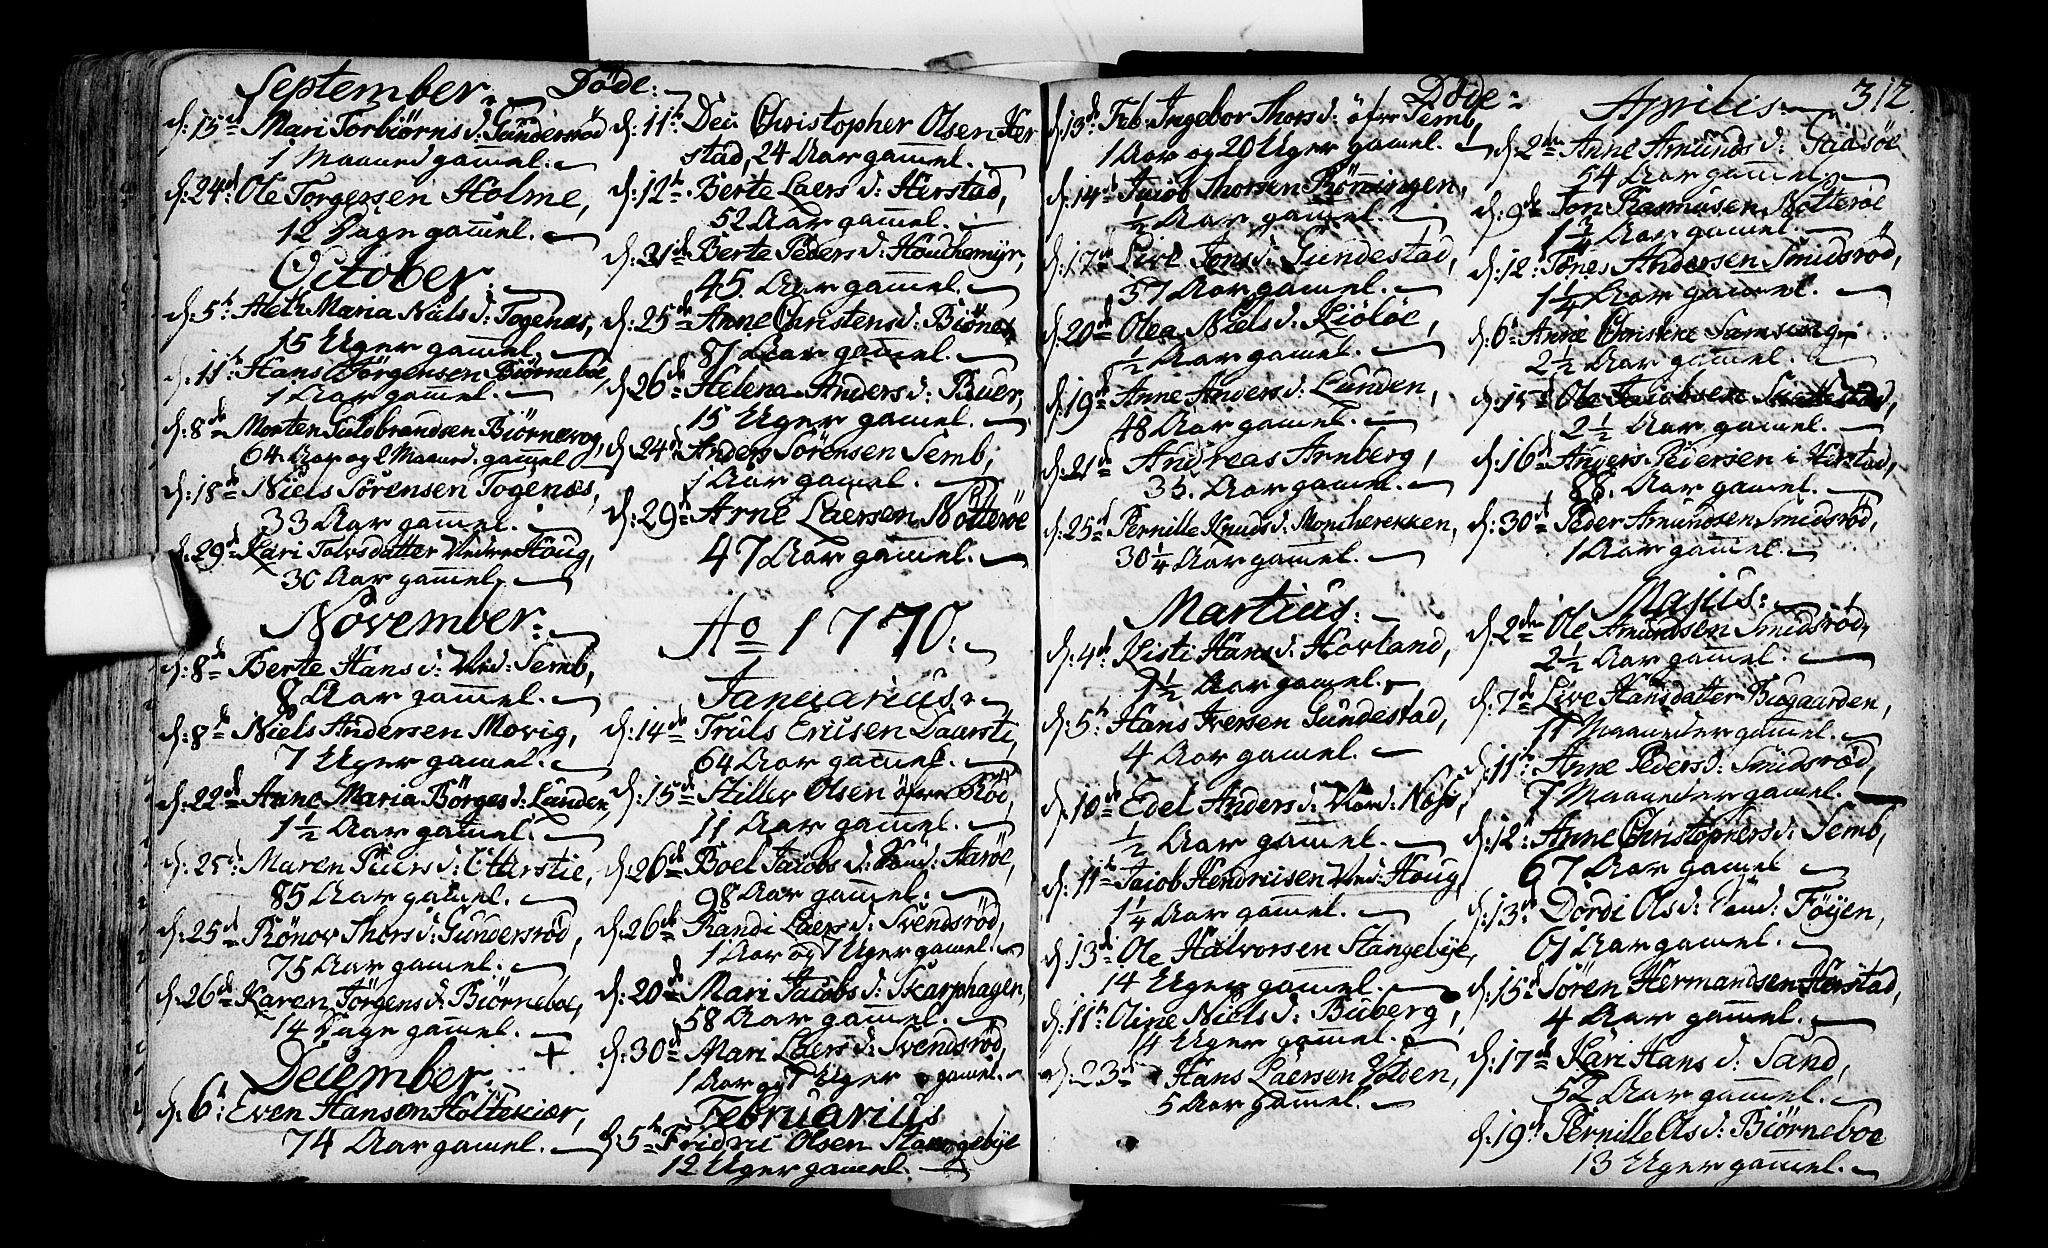 September. Döde:
d: 15de Mari Torbiörns d: Gundersröd
1 Maaned gammel.
d: 24de Ole Torgersen Holme,
12 Dage gammel.
October.
d: 5t Aleth Maria Niels d: Togenæs,
15 Uger gammel.
d: 11t Hans Jörgensen Biörneboe,
1 Aar gammel.
d: 8de Morten Guldbrandsen Biörnevog,
64 Aar og 2 Maaned. gammel
d: 18de Niels Sörensen Togenæs,
33 Aar gammel.
d: 29de Kari Tolvsdatter Nedre Houg,
30 Aar gammel.
November.
d: 8de Berte Hans d: Ned: Semb,
8 Aar gammel.
d: 8de Niels Andersen Movig,
7 Uger gammel.
d: 22de Anne Maria Börges d: Lunden,
1½ Aar gammel.
d: 25de Maren Peders d:
85 Aar gammel.
d: 25de Rönov Thors d: Gundersröd,
75 Aar gammel.
d: 26de Karen Jörgens d: Biörneboe,
14 Dage gammel.
December.
d: 6t Even Hansen Holtekiær,
74 Aar gammel.
d: 11t Dec: Christopher Olsen Her
stad, 24 Aar gammel.
d: 12t Berte Laers d: Herstad,
52 Aar gammel.
d: 21de Berte Peders d: Houchemyr,
45. Aar gammel.
d: 25de Anne Christens d: Biönes
87 Aar gammel.
d: 26de Helena Anders d: Buer,
15 Uger gammel.
d: 24de Anders Sörensen Semb,
1 Aar gammel.
d: 29de Arne Laersen Nötteröe
47 Aar gammel.
Ao 1770.
Januarius.
d: 14de Truls Ericsen
64 Aar gammel.
d: 15de Olsen öfre Röd,
11 Aar gammel.
d: 26de Boel Jacobs d: Aaröe,
98 Aar gammel.
d: 26de Randi Laers d: Svendsröd,
1 Aar og 7 Uger gammel.
d: 20de Mari Jacobs d: Skarphagen,
58 Aar gammel.
d: 30de Mari Laers d: Svendsröd,
1 Aar og 7 Uger gammel.
Februarius
d: 5t Fridric Olsen Stangebÿe
12 Uger gammel.
Döde
d: 13de Feb: Ingebor Thors d: öfre Semb,
1 Aar og 20 Uger gammel.
d: 14de Jacob Thorsen Röningen,
½ Aar gammel.
d: 17de Live Jons d: Gundestad,
57 Aar gammel.
d: 20de Olea Niels d: Kiölöe,
½ Aar gammel.
d: 19de Anne Anders d: Lunden,
48 Aar gammel.
d: 21de Andreas Arnberg,
35. Aar gammel.
d: 25de Pernille Knuds d: Muncherekken,
30¼ Aar gammel.
Martius.
d: 4de Kisti Hans d: Hovland,
1½ Aar gammel.
d: 5t Hans Iversen Gundestad,
4 Aar gammel.
d: 10de Edel Anders d: Nord: Næss,
½ Aar gammel.
d: 11t Jacob Hendricsen Ned: Houg,
1¼ Aar gammel.
d: 13de Ole Halvorsen Stangebÿe,
14 Uger gammel.
d: 11t Oline Niels d: Buberg,
14 Uger gammel.
d: 23de Hans Laersen Volden,
5 Aar gammel.
Aprilis. 312
d: 2den Anne Amunds d: Gadsöe
54 Aar gammel.
d: 9de Jon Rasmusen Nötteröe
1¼ Aar gammel.
d: 12: Tönes Andersen Smidsröd,
1¼ Aar gammel.
d: 6t Anne Christine Samsing,
2½ Aar gammel.
d: 15de Ole Jacobsen
2½ Aar gammel.
d: 16de Anders Pedersen i Herstad,
88. Aar gammel.
d: 30de Peder Amundsen Smidsröd,
1 Aar gammel.
Majus:
d: 2den Ole Amundsen Smidsröd,
2½ Aar gammel.
d: 7de Live Hansdatter Bogaarden,
11 Maaneder gammel.
d: 11t Anne Peders d: Smidsröd,
7 Maaneder gammel.
d: 12t Anne Christophers d: Semb,
67 Aar gammel
d: 13de Dordi Ols d: Föÿen,
61 Aar gammel.
d: 15de Sören Hermandsen Herstad,
4 Aar gammel.
d: 17de Kari Hans d: Sand,
52 Aar gammel.
d: 19de Pernille Ols d: Biörneboe
13 Uger gammel.